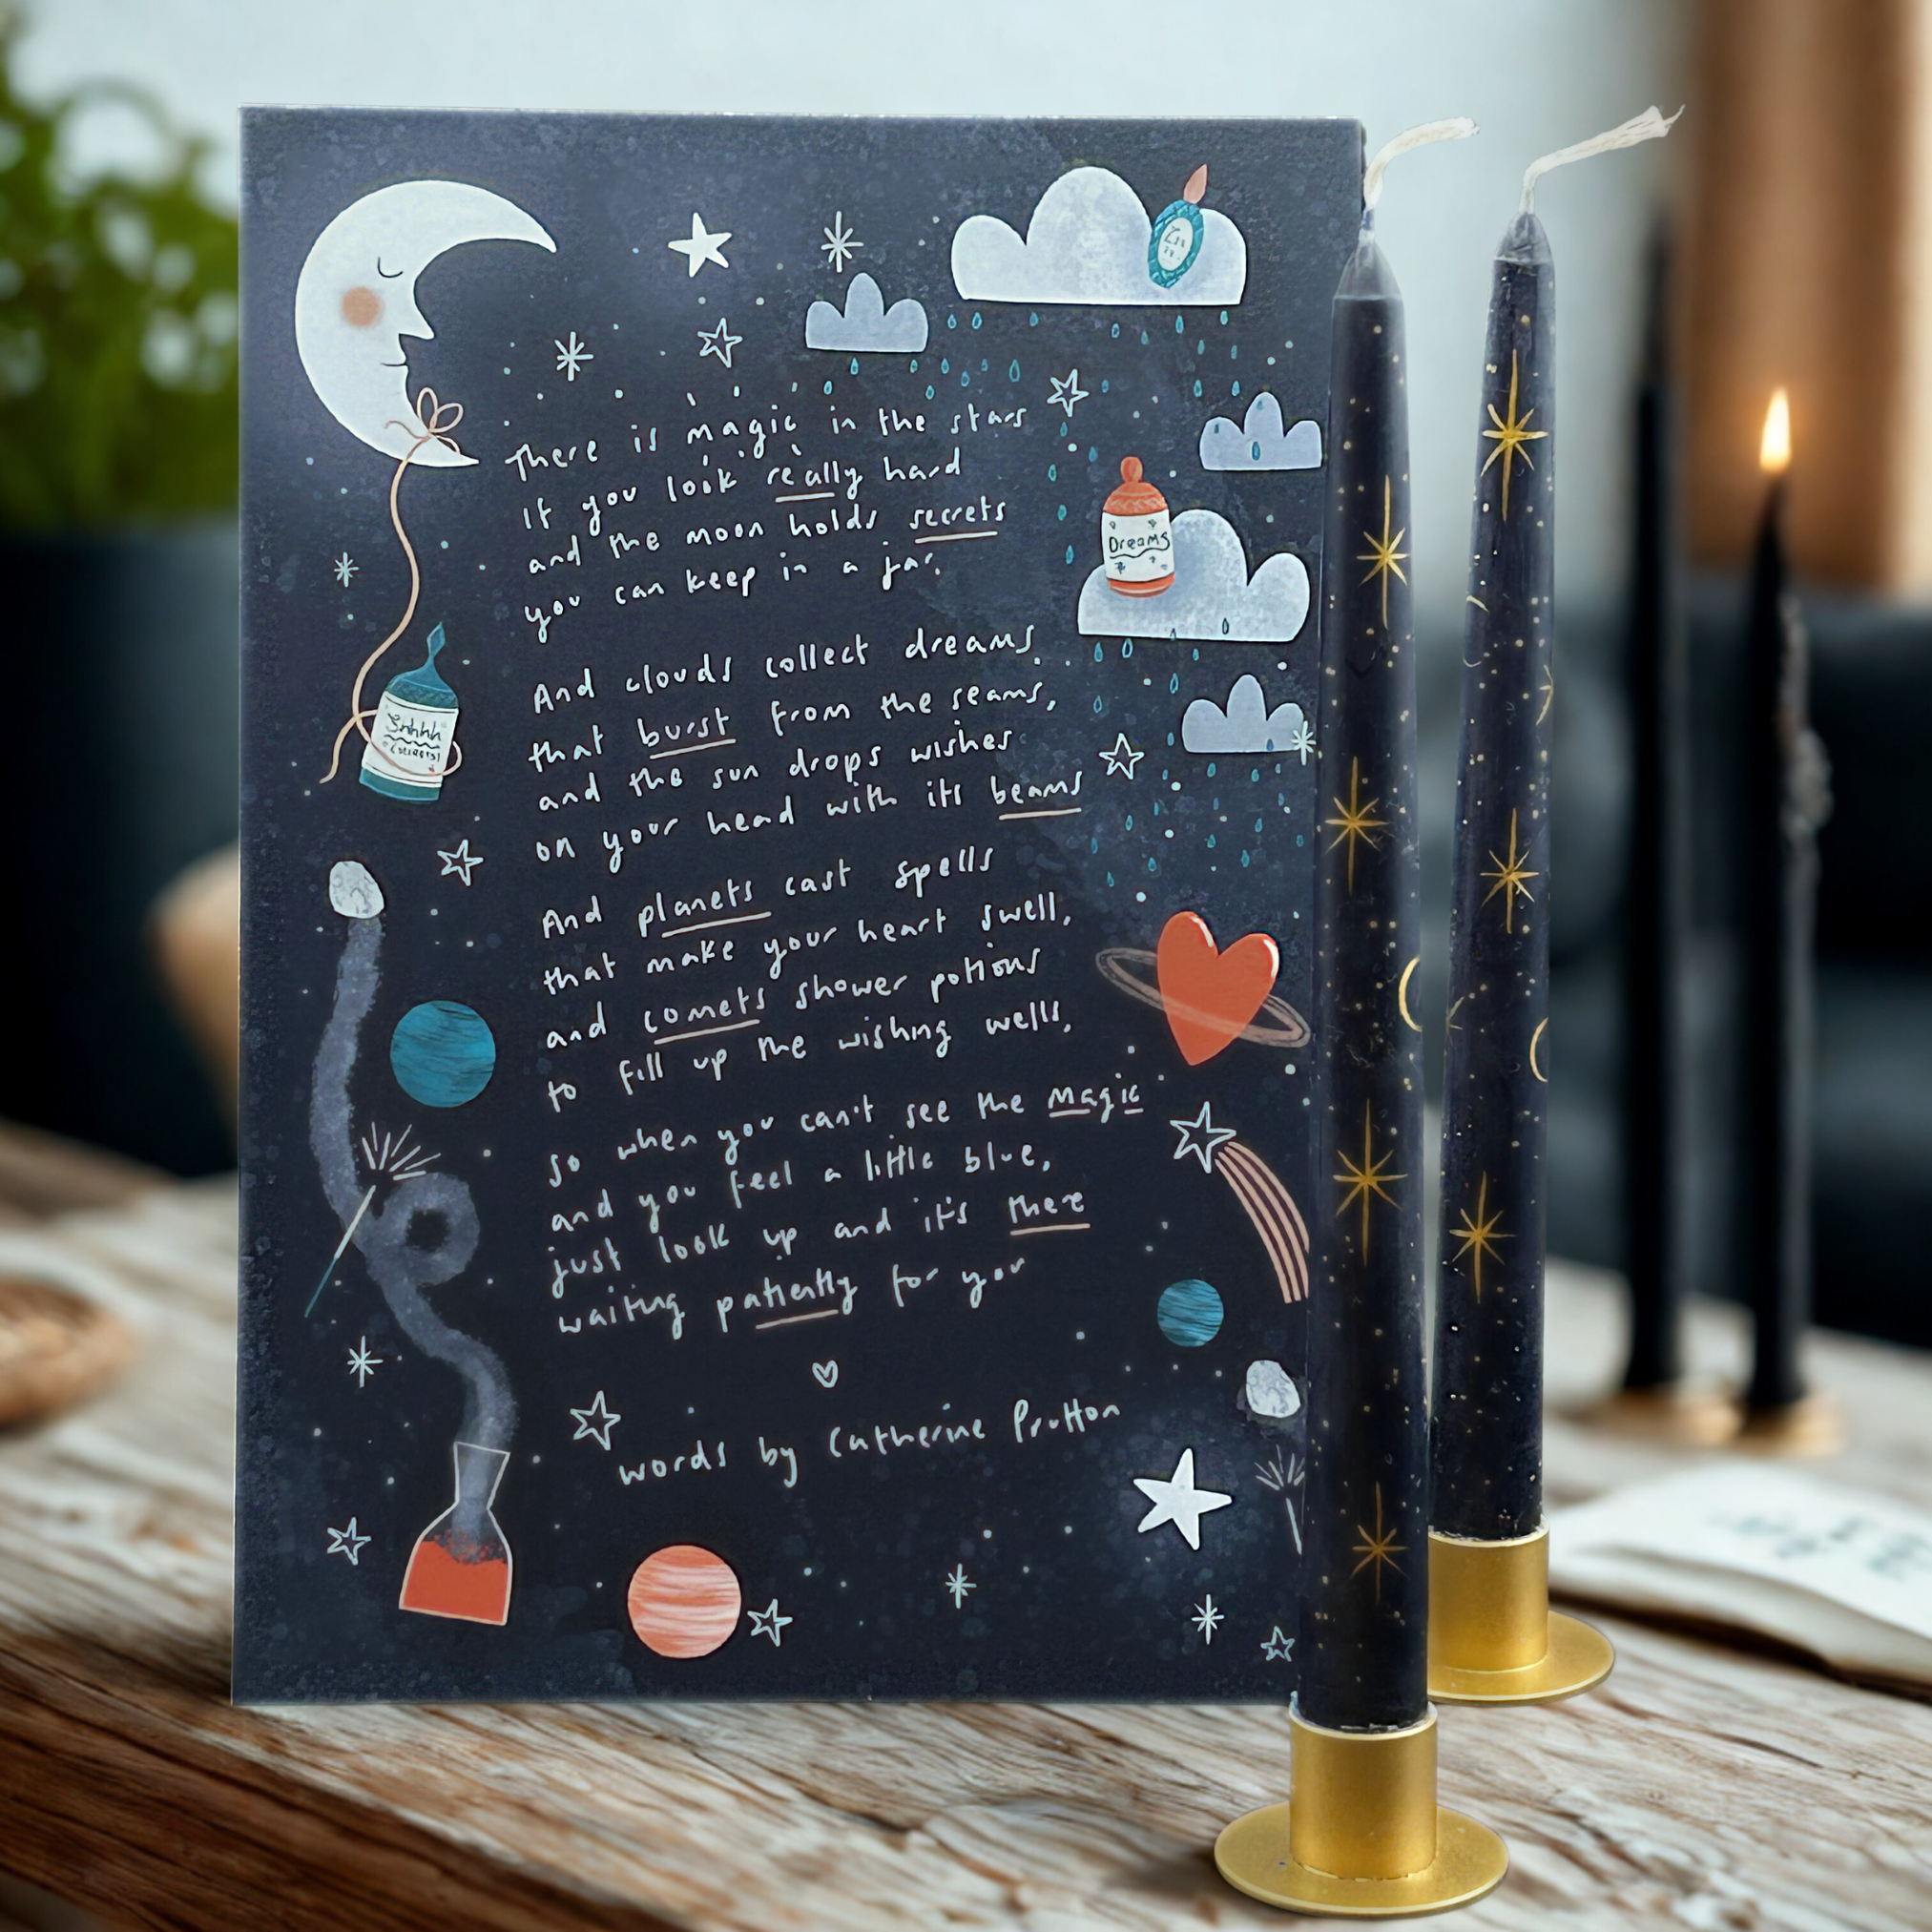 There is magic in the stars
If you look really hard
and the moon holds secrets
you can keep in a jar.
And clouds collect dreams
that burst from the seams,
and the sun drops wishes
on your head with its beams
And planets cast spells
that make your heart swell,
and comets shower potions
to fill up the wishing wells,
So when you can't see the magic
and you feel a little blue,
just look up and it's there
waiting patiently for you
words by Catherine Prutton
Dreams
Shhhh